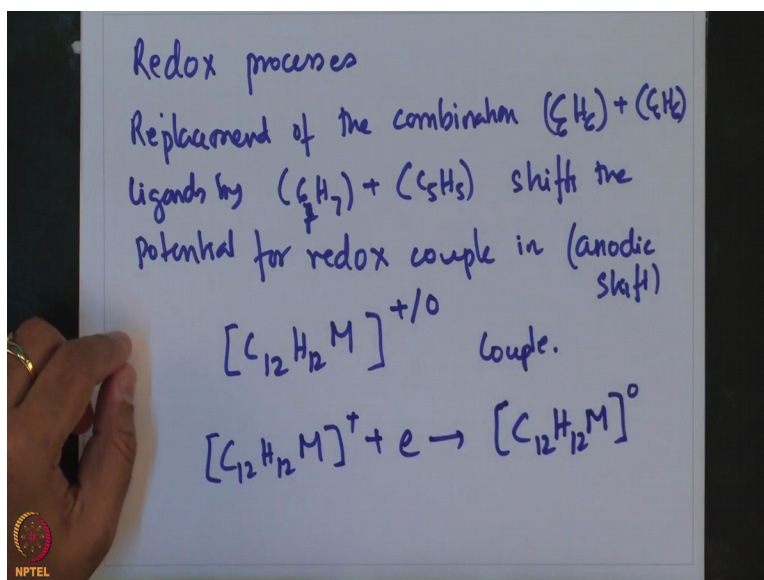 Redox processes
Replacement of the combination (C₆H₆) + (C₆H₆)
ligands by (C₇H₇) + (C₅H₅) shifts the
potential for redox couple in (anodic
shift)
[C₁₂H₁₂M]⁺/⁰ Couple.
[C₁₂H₁₂M]⁺ + e → [C₁₂H₁₂M]⁰
NPTEL